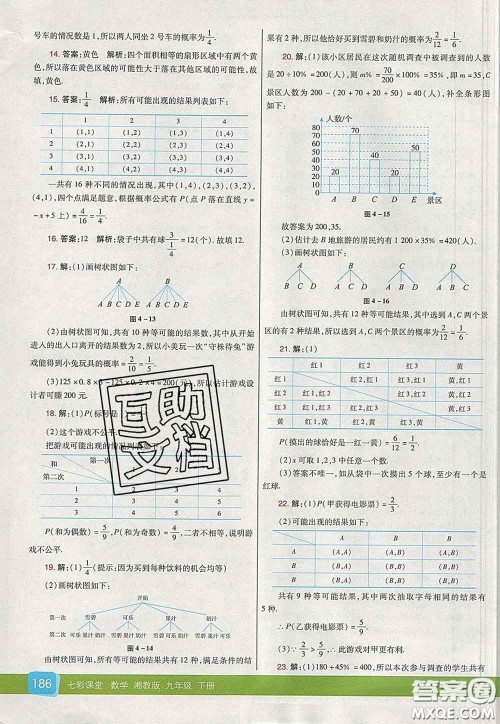 号车的情况数是1,所以两人同坐2号车的概率为1/4.
14. 答案:黄色 解析:四个面积相等的扇形区域中有两个黄色,所以落在黄色区域的可能性大于落在其他区域的可能性,故填黄色.
15. 答案:1/4 解析:所有可能出现的结果列表如下:
1 2 3 4
1 (1,1) (1,2) (1,3) (1,4)
2 (2,1) (2,2) (2,3) (2,4)
3 (3,1) (3,2) (3,3) (3,4)
4 (4,1) (4,2) (4,3) (4,4)
一共有16种不同的情况出现,其中(1,4),(2,3),(3,2),
(4,1)四个点满足题意,根据概率公式有P(点P落在直线y
=-x+5上)=4/16=1/4.
16. 答案:12 解析:袋子中共有球
=12(个),故填12.
17. 解:(1)画树状图如下:
A E
A B C D E A B C D E
图4-13
(2)由树状图可知,共有10种等可能的结果数,其中从开始
进入的出入口离开的有2种,所以小美玩一次“守株待兔”游
戏能得到小兔玩具的概率=2/10=1/5.
(3)125×0.8×3-125×0.2×4=200(元),所以估计游戏设
计者可赚200元.
18. 解:(1)P(标号是
(2)这个游戏不公平.
把游戏可能出现的情况列表如下:
第一次
和
第二次
P(和为偶数)=5/9,P(和为奇数)=4/9,二者不相等,说明游
戏不公平.
19. 解:(1)1/4(提示:买到每种饮料的机会均等)
(2)画树状图如下:
开始
第一次 雪碧 可乐 果汁 奶汁
第二次 可乐 果汁 奶汁 雪碧 果汁 奶汁 雪碧 可乐 奶汁 雪碧 可乐 果汁
图4-14
由树状图可知,所有等可能的结果共有12种,满足条件的结
果有2种,所以他恰好买到雪碧和奶汁的概率为2/12=1/6.
20. 解:(1)该小区居民在这次随机调查中被调查到的人数
是20÷10%=200(人),则m%=70/200×100%=35%,即m=35,C
景区人数为200-(20+70+20+50)=40(人),补全条形图
如图:
人数/个
80
70
60
50
40
30
20
10
0
20 70 40 20 50
A B C D E 景区
图4-15
故答案为200,35.
(2)估计去B地旅游的居民约有1 200×35%=420(人).
(3)画树状图如下:
A B C D
B C D A C D A B D A B C
图4-16
由树状图可知,共有12种等可能的结果,其中选到A,C两个
景区的有2种结果,所以选到A,C两个景区的概率为2/12=1/6.
21. 解:(1)
红1 红2 红3 黄
红1 红2,红1 红3,红1 黄,红1
红2 红1,红2 红3,红2 黄,红2
红3 红1,红3 红2,红3 黄,红3
黄 红1,黄 红2,黄 红3,黄
P(摸出的球恰好是一红一黄)=6/12=1/2.
(2)x可取1,2,3.
(3)答案不唯一,如从袋中一次摸出2个球,至少有一个是
红球.
22. 解:(1)P(甲获得电影票)=2/3.
(2)可能出现的结果如下:
A B B
A (A,A) (A,B) (A,B)
B (B,A) (B,B) (B,B)
B (B,A) (B,B) (B,B)
共有9种等可能的结果,其中两次抽取字母相同的结果有
5种.
∴P(乙获得电影票)=5/9.
(3)此游戏对
23. 解:(1)180÷45%=400(人),所以本次参与调查的学生共有
186
七彩课堂 数学 湘教版 九年级 下册
互助
文档
答案圈